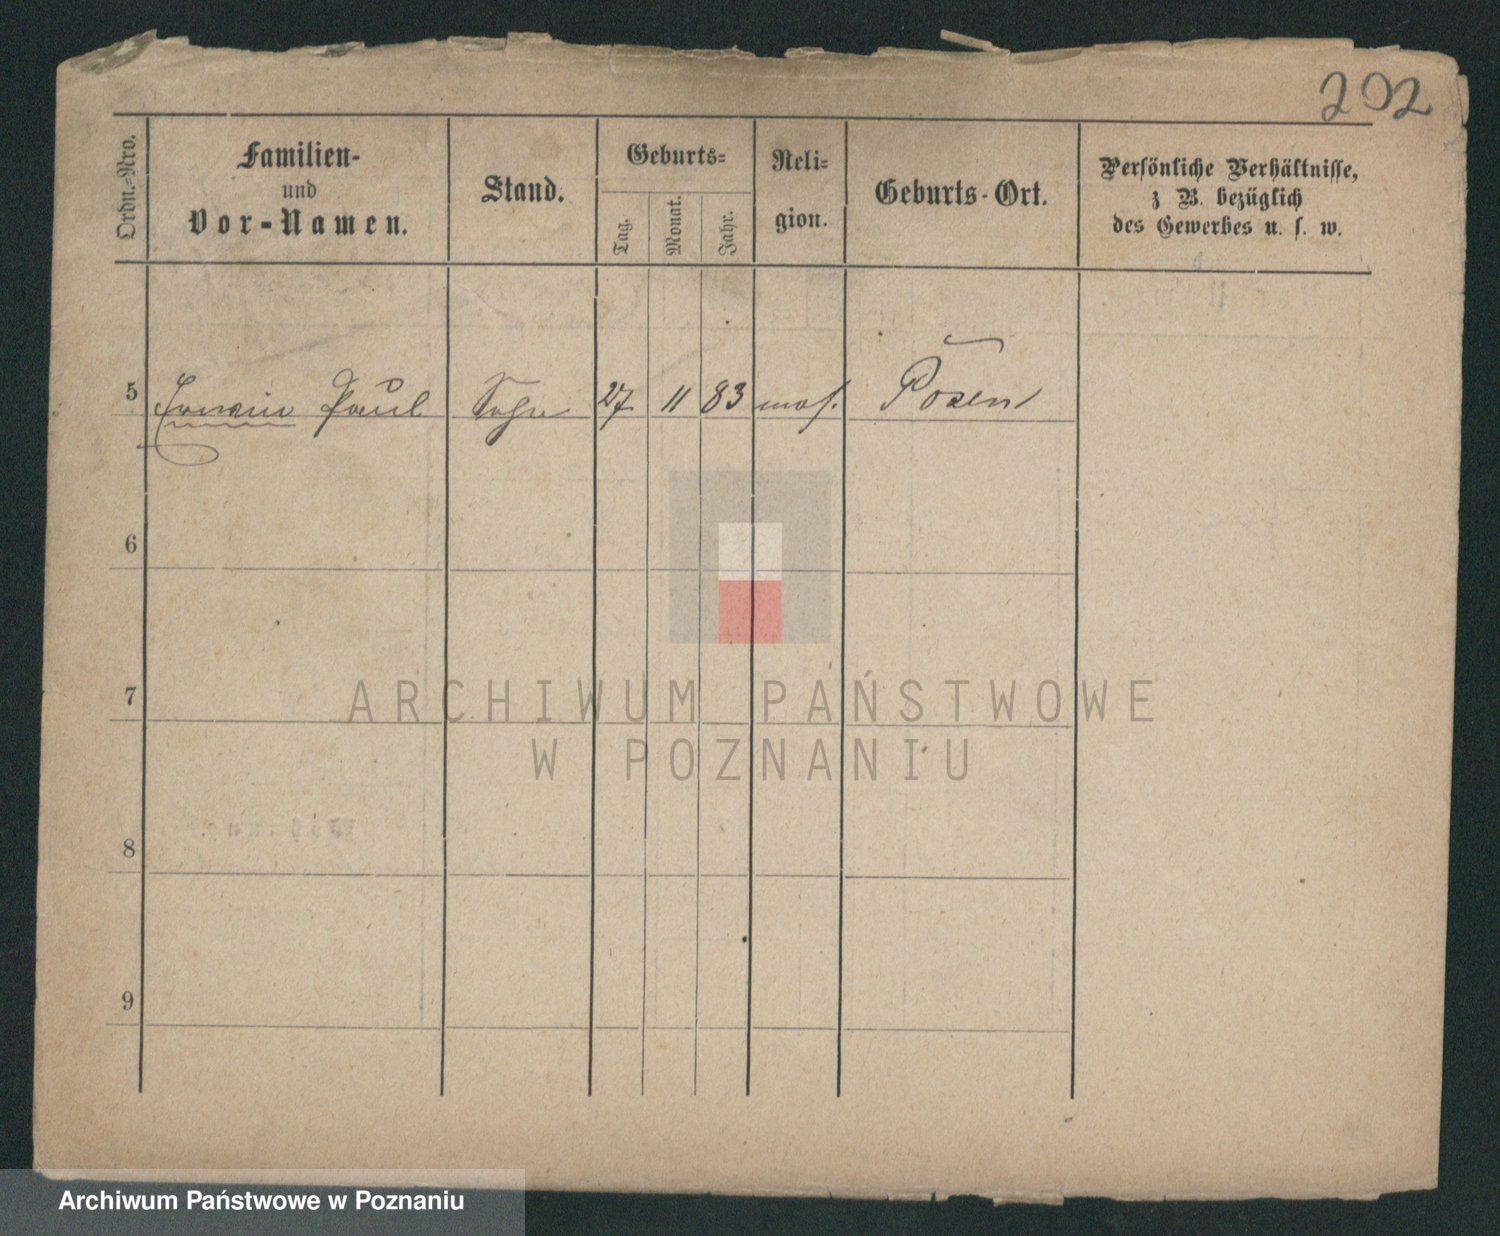 202
Ordn.-Nro.
Familien-
und
Vor-Namen.
Stand.
Geburts-
Tag.
Monat.
Jahr.
Reli-
gion.
Geburts-Ort.
Persönliche Verhältnisse,
z B. bezüglich
des Gewerbes u. s. w.
5 Erwin Paul Sohn 27 11 83 mos. Posen
6
7
ARCHIWUM PAŃSTWOWE
W POZNANIU
8
9
Archiwum Państwowe w Poznaniu